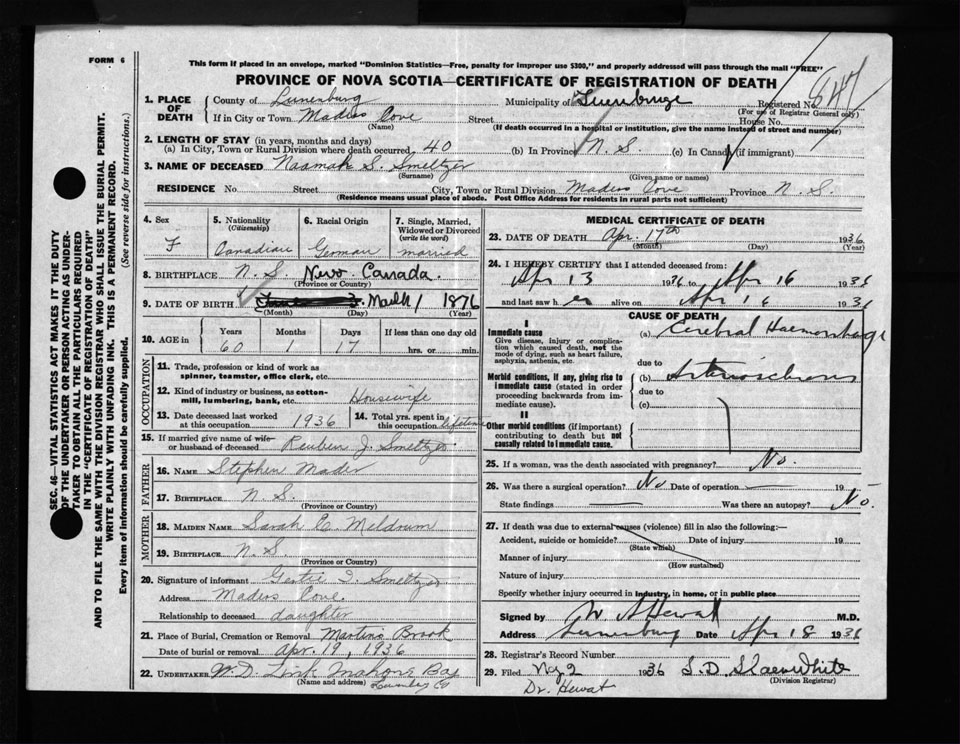 FORM 6
This form if placed in an envelope, marked "Dominion Statistics—Free, penalty for improper use $300," and properly addressed will pass through the mail "FREE"
PROVINCE OF NOVA SCOTIA—CERTIFICATE OF REGISTRATION OF DEATH
1. PLACE OF DEATH
County of Lunenburg Municipality of Registered No. 547
(For use of Registrar General only)
If in City or Town Maders Cove Street House No.
(Name) (If death occurred in a hospital or institution, give the name instead of street and number)
2. LENGTH OF STAY (in years, months and days)
(a) In City, Town or Rural Division where death occurred 40 (b) In Province N. S. (c) In Canada (if immigrant)
3. NAME OF DECEASED Naamah S. Smeltzer
(Surname) (Given name or names)
RESIDENCE No. Street City, Town or Rural Division Maders Cove Province N. S.
(Residence means usual place of abode. Post Office Address for residents in rural parts not sufficient)
4. Sex
F
5. Nationality
(Citizenship)
Canadian
6. Racial Origin
German
7. Single, Married, Widowed or Divorced
(write the word)
married
8. BIRTHPLACE N. S. Canada.
(Province or Country)
9. DATE OF BIRTH March 1 1876
(Month) (Day) (Year)
10. AGE in
Years Months Days If less than one day old
60 1 17 hrs. or min.
OCCUPATION
11. Trade, profession or kind of work as
spinner, teamster, office clerk, etc.
12. Kind of industry or business, as cotton-
mill, lumbering, bank, etc. Housewife
13. Date deceased last worked
at this occupation 1936
14. Total yrs. spent in
this occupation lifetime
15. If married give name of wife
or husband of deceased Reuben J. Smeltzer
FATHER
16. NAME Stephen Mader
17. BIRTHPLACE N. S.
(Province or Country)
MOTHER
18. MAIDEN NAME Sarah E. Meldrum
19. BIRTHPLACE N. S.
(Province or Country)
20. Signature of informant I. Smeltzer
Address Maders Cove.
Relationship to deceased daughter
21. Place of Burial, Cremation or Removal Martins Brook
Date of burial or removal Apr. 19, 1936
22. UNDERTAKER W. D. Link Mahone Bay
(Name and address) Co
MEDICAL CERTIFICATE OF DEATH
23. DATE OF DEATH Apr. 17th 1936
(Month) (Day) (Year)
24. I HEREBY CERTIFY that I attended deceased from:
Apr 13 1936 to Apr 16 1936
and last saw her alive on Apr 16 1936
CAUSE OF DEATH
I
Immediate cause
Give disease, injury or complication which caused death, not the mode of dying, such as heart failure, asphyxia, asthenia, etc.
(a) Cerebral Haemorrhage
due to
Morbid conditions, if any, giving rise to immediate cause (stated in order proceeding backwards from immediate cause).
(b) Arteriosclerosis
due to
(c)
II
Other morbid conditions (if important) contributing to death but not causally related to immediate cause.
25. If a woman, was the death associated with pregnancy? No.
26. Was there a surgical operation? No Date of operation 19
State findings Was there an autopsy? No.
27. If death was due to external causes (violence) fill in also the following:—
Accident, suicide or homicide? Date of injury 19
(State which)
Manner of injury
(How sustained)
Nature of injury
Specify whether injury occurred in industry, in home, or in public place
Signed by W. A Hewat M.D.
Address Lunenburg Date Apr 18 1936
28. Registrar's Record Number
29. Filed 2 1936
(Division Registrar)
Dr. Hewat
SEC. 46—VITAL STATISTICS ACT MAKES IT THE DUTY
OF THE UNDERTAKER OR PERSON ACTING AS UNDER-
TAKER TO OBTAIN ALL THE PARTICULARS REQUIRED
IN THE "CERTIFICATE OF REGISTRATION OF DEATH"
AND TO FILE THE SAME WITH THE DIVISION REGISTRAR WHO SHALL ISSUE THE BURIAL PERMIT.
WRITE PLAINLY WITH UNFADING INK. THIS IS A PERMANENT RECORD.
Every item of information should be carefully supplied. (See reverse side for instructions.)